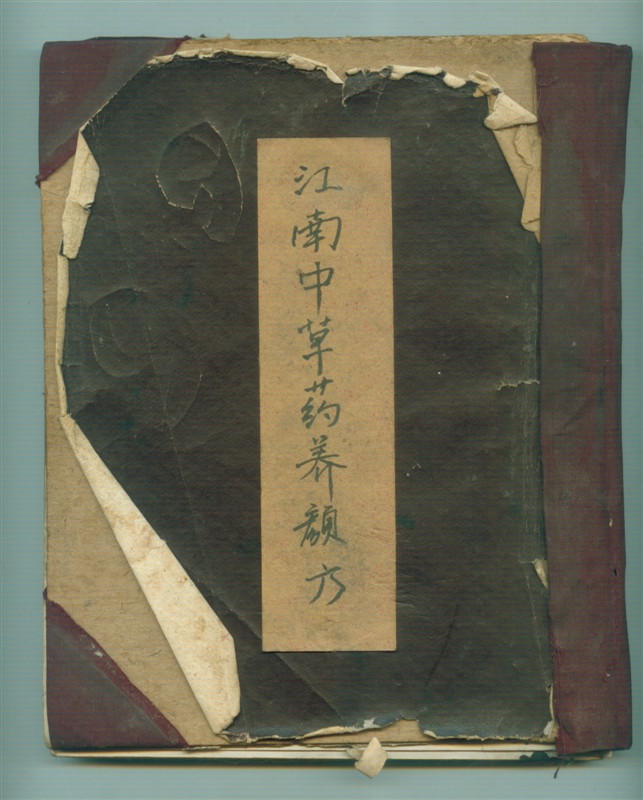 江南中草药养颜方